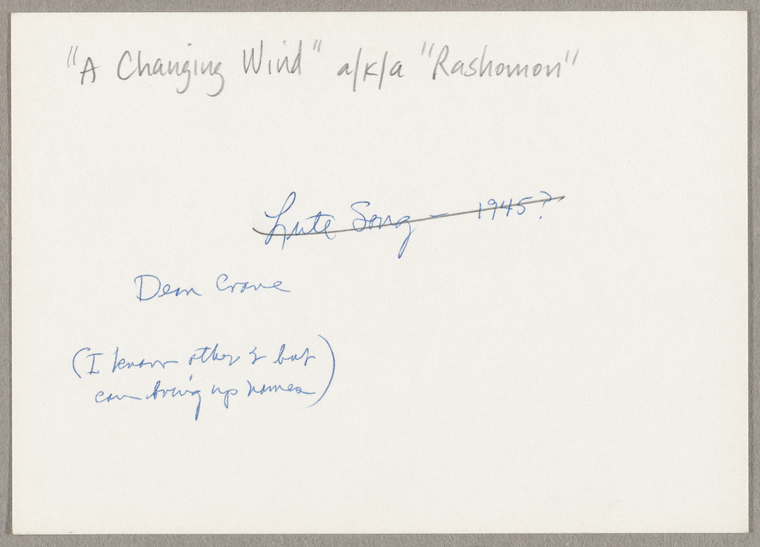 "A Changing Wind" a/k/a "Rashomon"
Lute Song - 1945?
Dean Crane
(I know other 2 but
can bring up names)